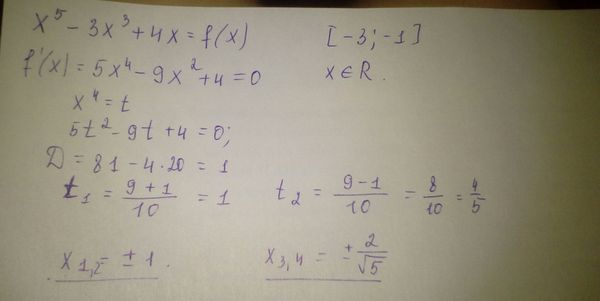 x⁵ - 3x³ + 4x = f(x) [-3; -1]
f'(x) = 5x⁴ - 9x² + 4 = 0 x ∈ R.
x⁴ = t
5t² - 9t + 4 = 0;
D = 81 - 4·20 = 1
t₁ = (9 + 1)/10 = 1 t₂ = (9 - 1)/10 = 8/10 = 4/5
x₁,₂ = ± 1. x₃,₄ = ± 2/√5